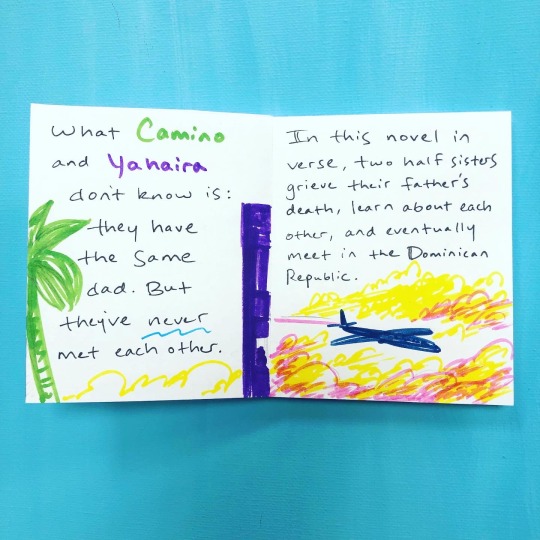 What Camino
and Yahaira
don't know is:
they have
the same
dad. But
they've never
met each other.
In this novel in
verse, two half sisters
grieve their father's
death, learn about each
other, and eventually
meet in the Dominican
Republic.